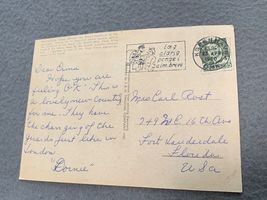 Dear Erma
Hope you are
feeling O.K. This is
a lovely new country
for me. They have
the changing of the
guards just like in
London
"Bornie"
Læg
aldrig
penge i
alm. brev
Mrs Carl Rost
249 N.E. 16th Ave
Fort Lauderdale
Florida
USA